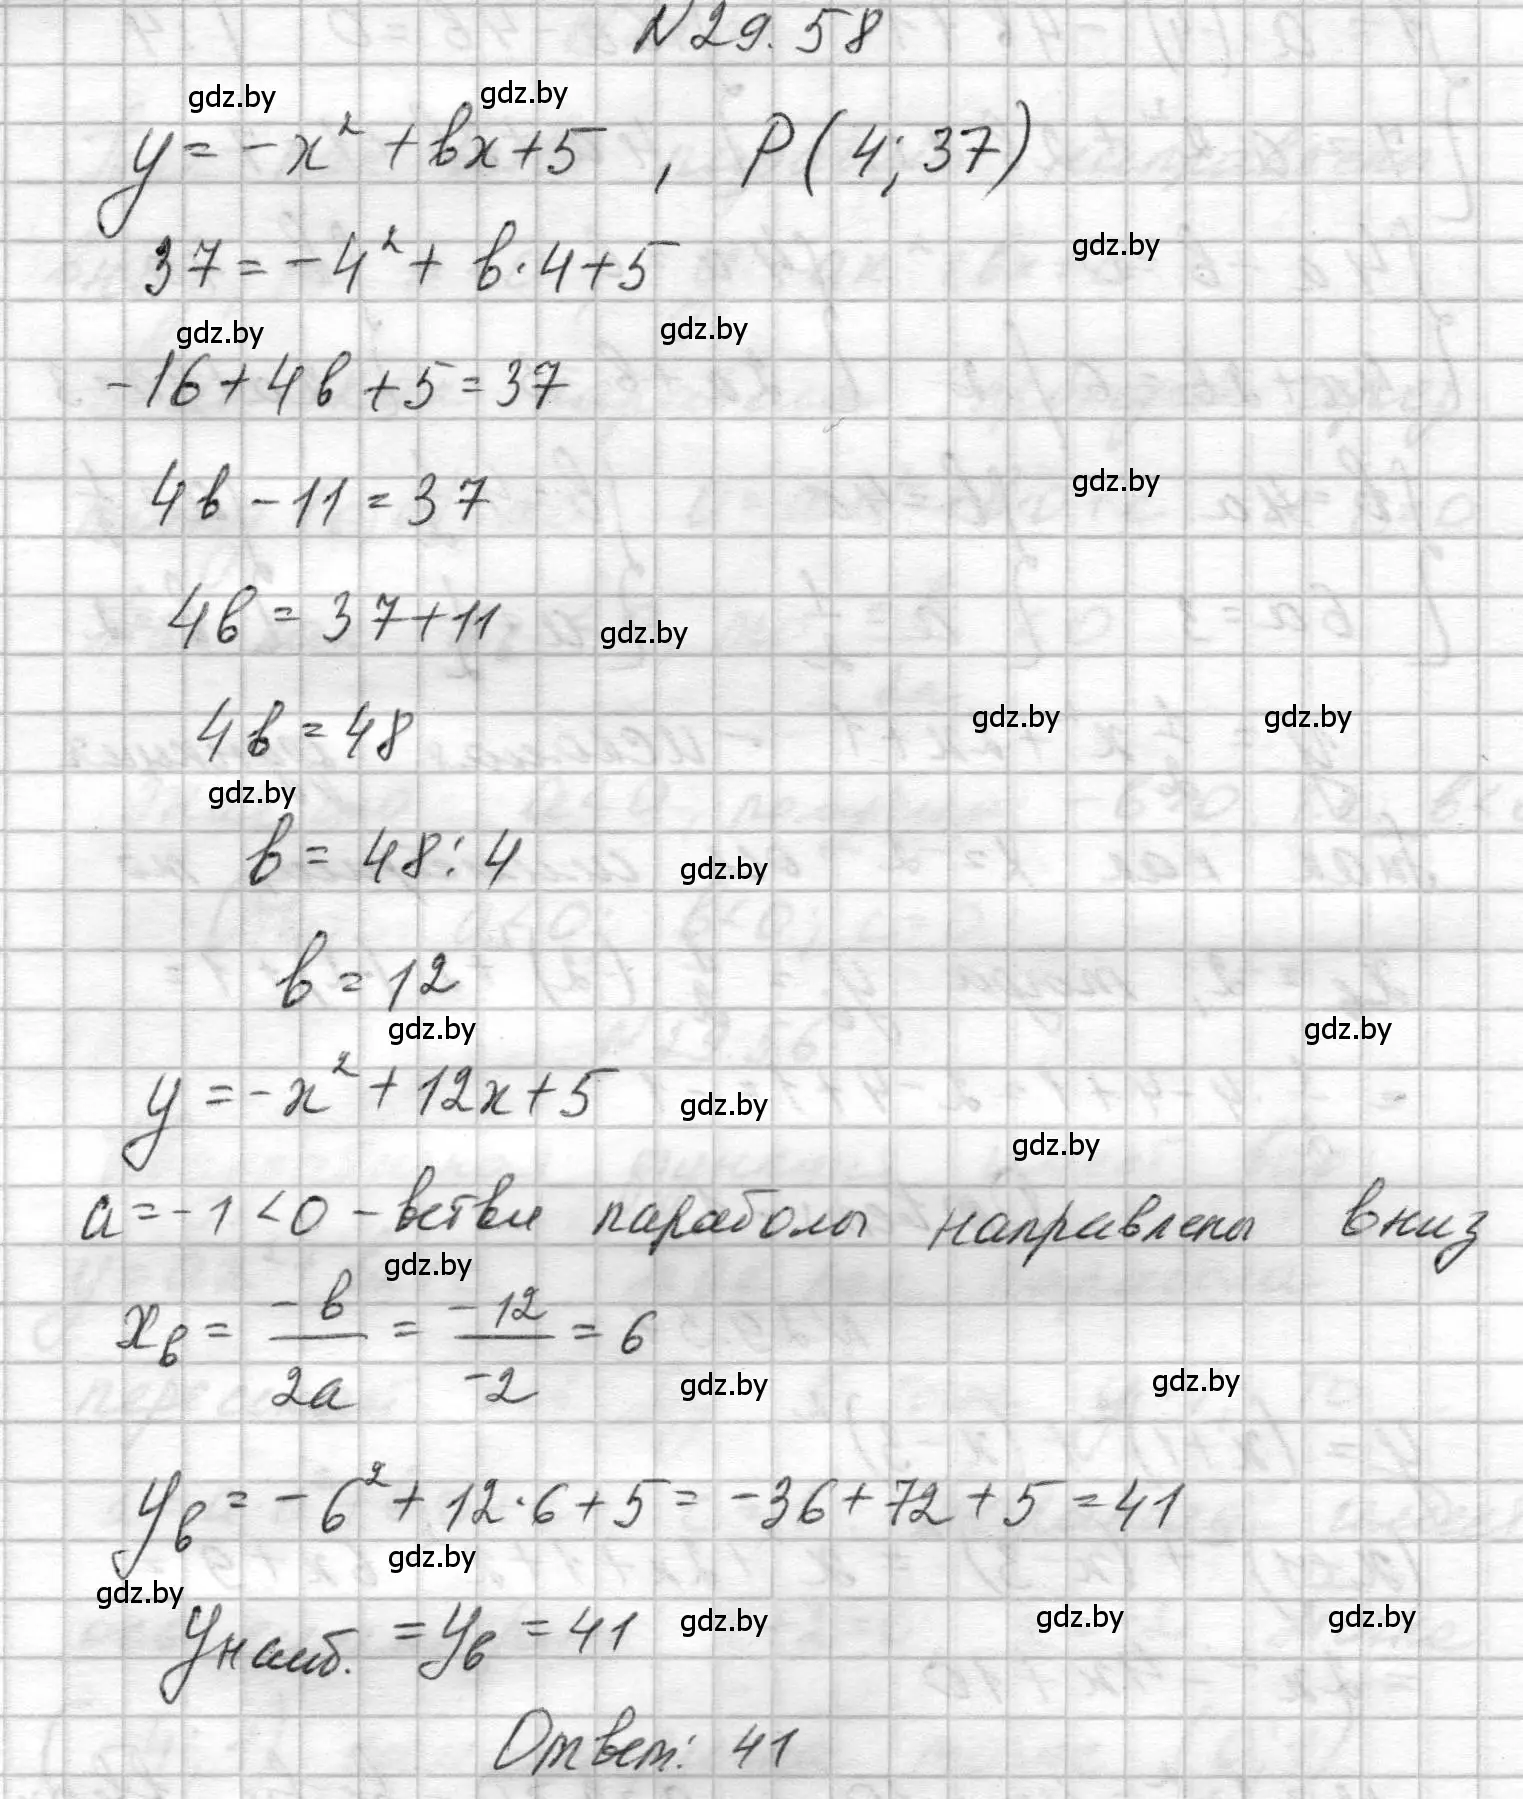 N 29.58
gdz.by gdz.by
y = -x² + bx + 5 , P(4; 37)
37 = -4² + b·4 + 5
gdz.by
gdz.by gdz.by
-16 + 4b + 5 = 37
4b - 11 = 37
gdz.by
4b = 37 + 11
gdz.by
4b = 48
gdz.by gdz.by
gdz.by
b = 48 : 4
gdz.by
b = 12
gdz.by gdz.by
y = -x² + 12x + 5
gdz.by
gdz.by
a = -1 < 0 - ветви параболы направлены вниз
gdz.by
xв = -b/2a = -12/-2 = 6
gdz.by gdz.by
yв = -6² + 12·6 + 5 = -36 + 72 + 5 = 41
gdz.by
gdz.by
yнаиб. = yв = 41
gdz.by gdz.by gdz.by
Ответ: 41